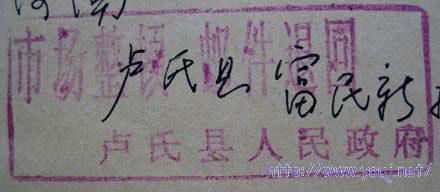 河南
市场整顿 邮件退回
卢氏县 富民新
卢氏县人民政府
http://www.youj.net/